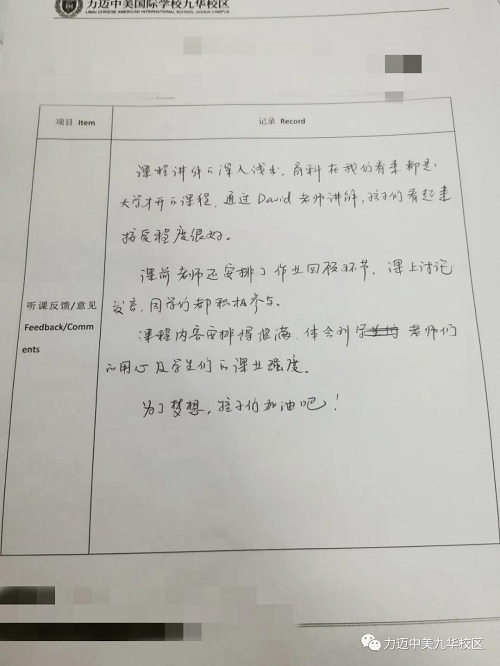 力迈中美国际学校九华校区
LIMAI CHINESE AMERICAN INTERNATIONAL SCHOOL JIUHUA CAMPUS
项目 Item
记录 Record
课程讲解的深入浅出,商科在我们看来都是
大学才开的课程,通过David老师讲解,孩子们看起来
接受程度很好。
课前老师还安排了作业回顾环节,课上讨论
发言,同学们都积极参与。
听课反馈/意见
Feedback/Comm
ents
课程内容安排得很满,体会到 老师们
的用心及学生们的课业强度。
为了梦想,孩子们加油吧!
力迈中美九华校区